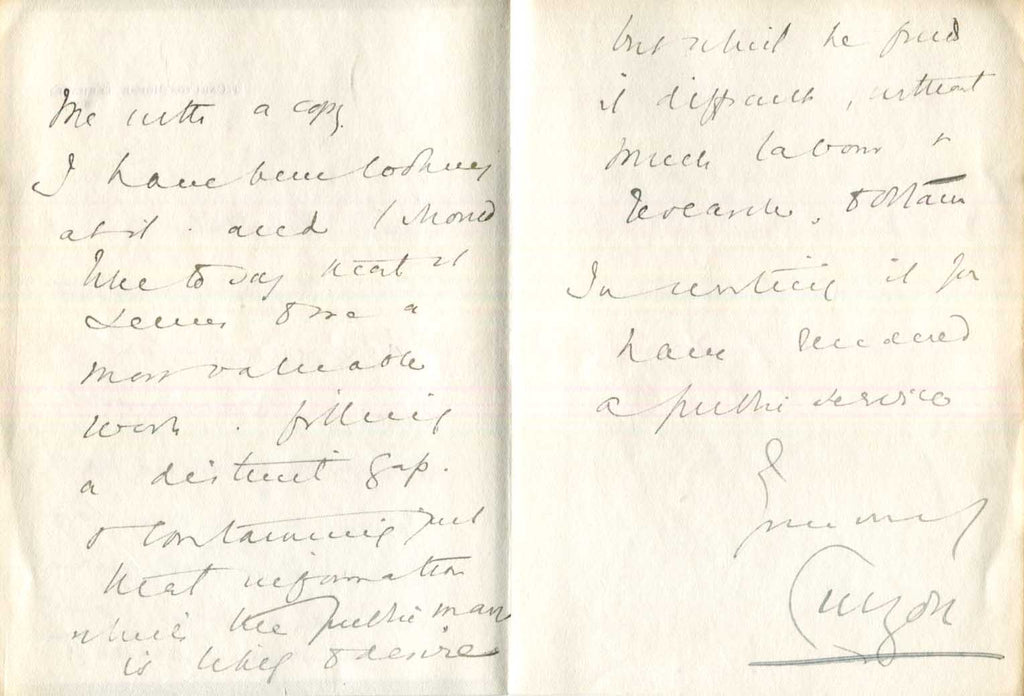 me with a copy.
I have been looking
at it. and I should
like to say that it
seems to me a
most valuable
work. filling
a distinct gap.
& containing just
that information
which the public man
is likely to desire
but which he finds
it difficult, without
much labour &
research, to obtain
In writing it you
have rendered
a public service
I am
yours
Curzon